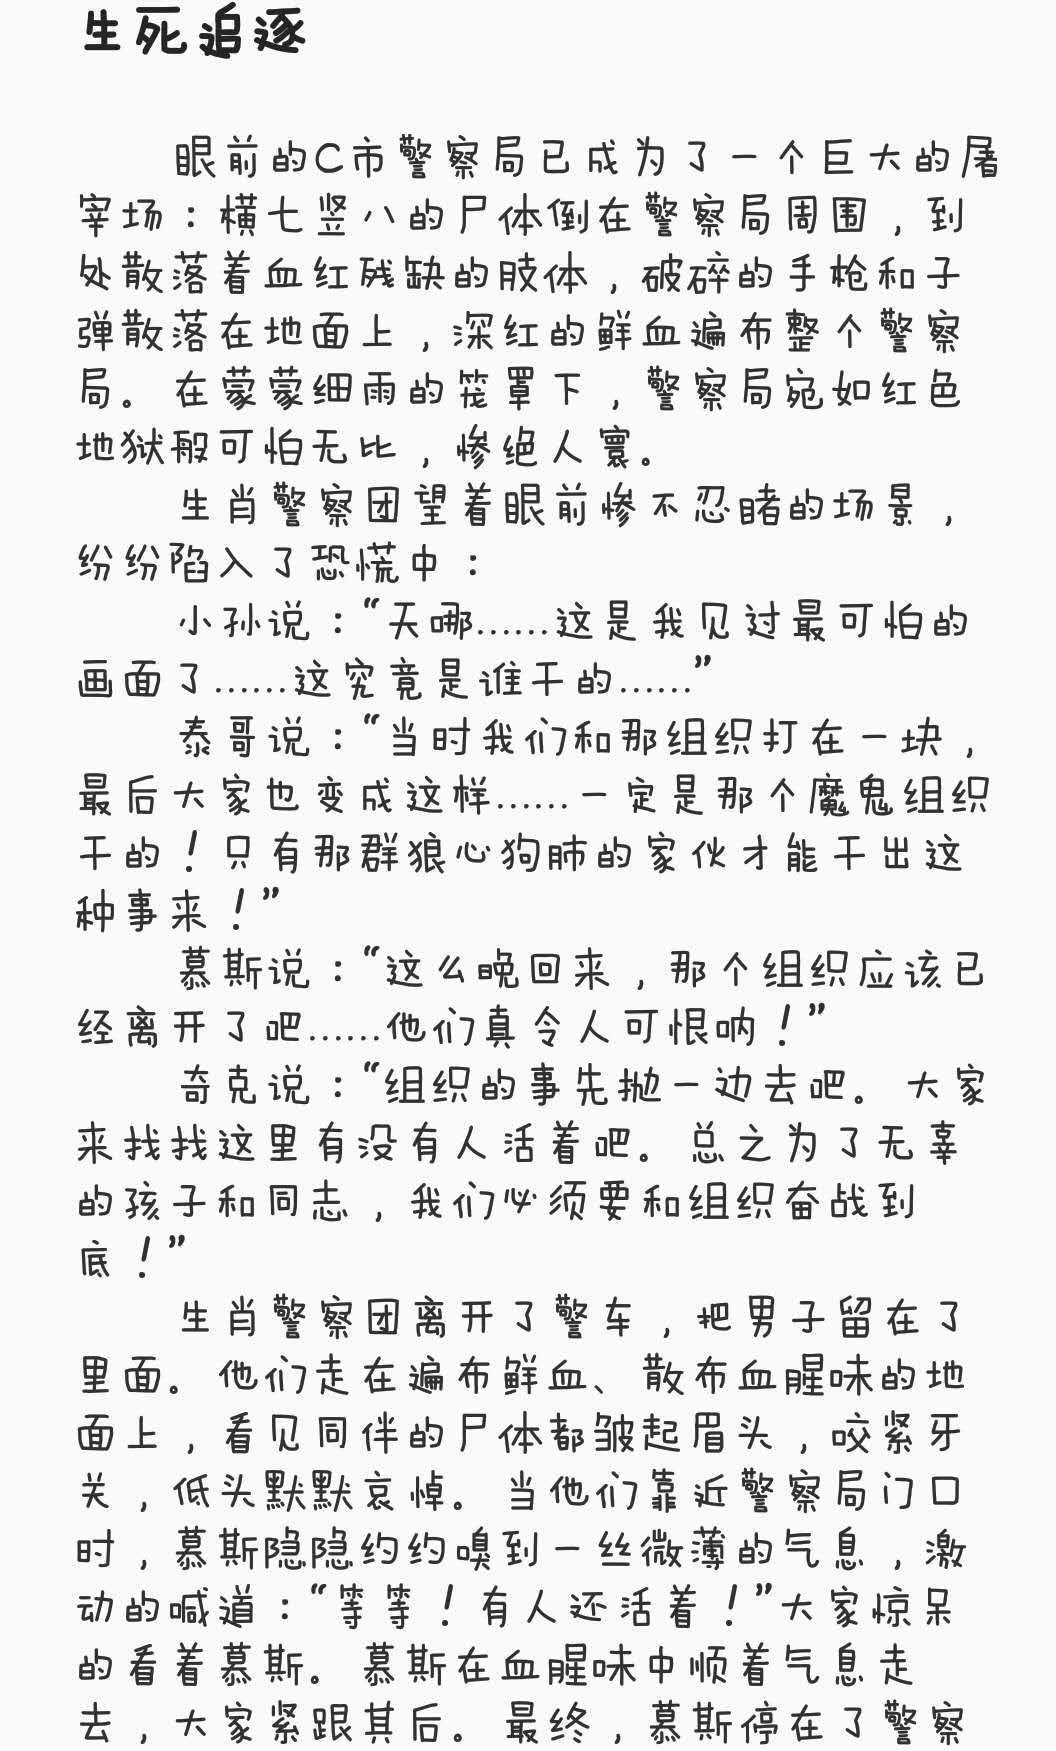 生死追逐
眼前的C市警察局已成为了一个巨大的屠
宰场：横七竖八的尸体倒在警察局周围，到
处散落着血红残缺的肢体，破碎的手枪和子
弹散落在地面上，深红的鲜血遍布整个警察
局。在蒙蒙细雨的笼罩下，警察局宛如红色
地狱般可怕无比，惨绝人寰。
生肖警察团望着眼前惨不忍睹的场景，
纷纷陷入了恐慌中：
小孙说：“天哪……这是我见过最可怕的
画面了……这究竟是谁干的……”
泰哥说：“当时我们和那组织打在一块，
最后大家也变成这样……一定是那个魔鬼组织
干的！只有那群狼心狗肺的家伙才能干出这
种事来！”
慕斯说：“这么晚回来，那个组织应该已
经离开了吧……他们真令人可恨呐！”
奇克说：“组织的事先抛一边去吧。大家
来找找这里有没有人活着吧。总之为了无辜
的孩子和同志，我们必须要和组织奋战到
底！”
生肖警察团离开了警车，把男子留在了
里面。他们走在遍布鲜血、散布血腥味的地
面上，看见同伴的尸体都皱起眉头，咬紧牙
关，低头默默哀悼。当他们靠近警察局门口
时，慕斯隐隐约约嗅到一丝微薄的气息，激
动的喊道：“等等！有人还活着！”大家惊呆
的看着慕斯。慕斯在血腥味中顺着气息走
去，大家紧跟其后。最终，慕斯停在了警察